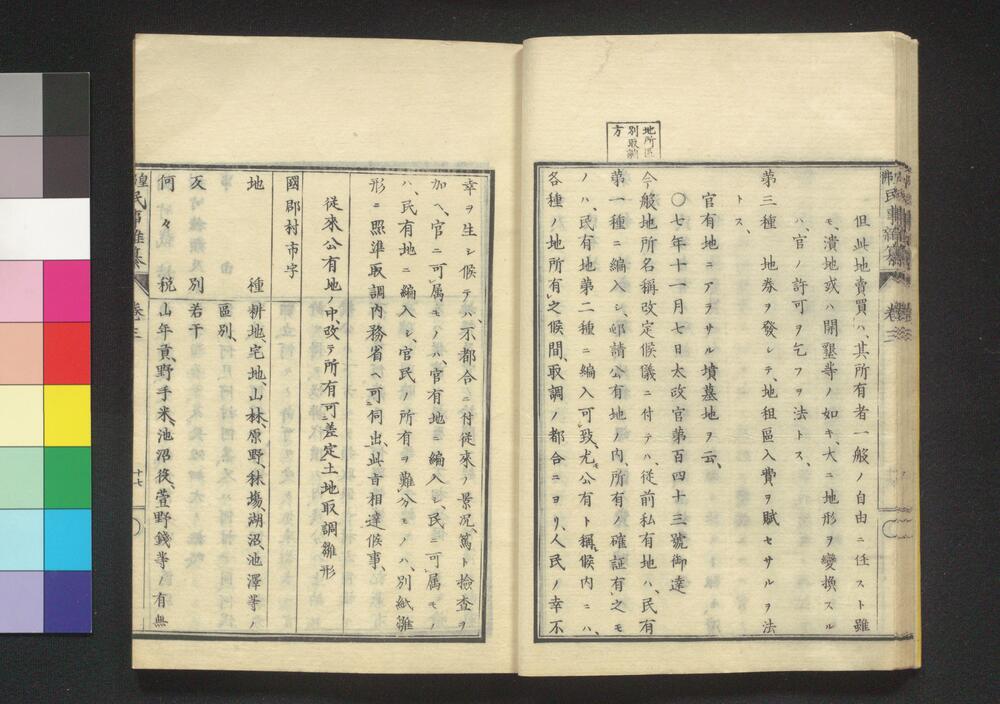 地所區
別取調
方
但此地賣買ハ、其所有者一般ノ自由ニ任スト雖
モ、潰地或ハ開墾等ノ如キ、大ニ地形ヲ變換スル
ハ、官ノ許可ヲ乞フヲ法トス、
第三種　地券ヲ發シテ、地租區入費ヲ賦セサルヲ法
トス、
官有地ニアラサル墳墓地ヲ云、
〇七年十一月七日太政官第百四十三號御達
今般地所名稱改定候儀ニ付テハ、從前私有地ハ、民有
第一種ニ編入シ、邨請公有地ノ内、所有ノ確証有之モ
ノハ、民有地第二種ニ編入可致、尤モ公有ト稱候内ニハ、
各種ノ地所有之候間、取調ノ都合ニヨリ、人民ノ幸不
幸ヲ生シ候テハ、不都合ニ付從來ノ景况、篤ト撿査ヲ
加ヘ、官ニ可属モノハ、官有地ニ編入シ、民ニ可属モノ
ハ、民有地ニ編入シ、官民ノ所有ヲ難分モノハ、別紙雛
形ニ照準取調内務省ヘ可伺出、此旨相達候事、
從來公有地ノ中改テ所有可差定土地取調雛形
國郡村市字
地種　耕地、宅地、山林、原野、秣塲、湖沼、池澤等ノ
區別、
反別　若干
何々税　山年貢、野手米、池沼役、萱野錢等ノ有無
民事
卷三
十七